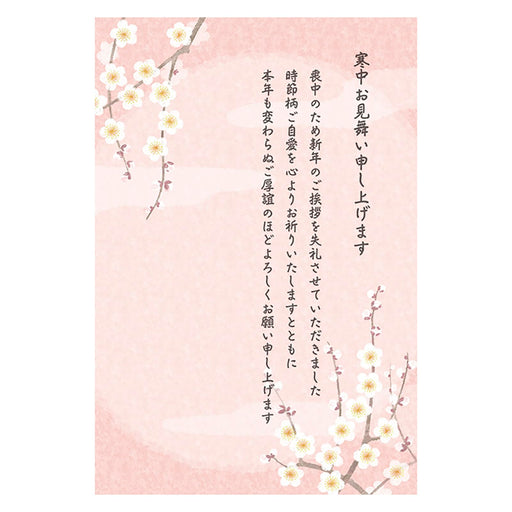 寒中お見舞い申し上げます
喪中のため新年のご挨拶を失礼させていただきました
時節柄ご自愛を心よりお祈りいたしますとともに
本年も変わらぬご厚誼のほどよろしくお願い申し上げます